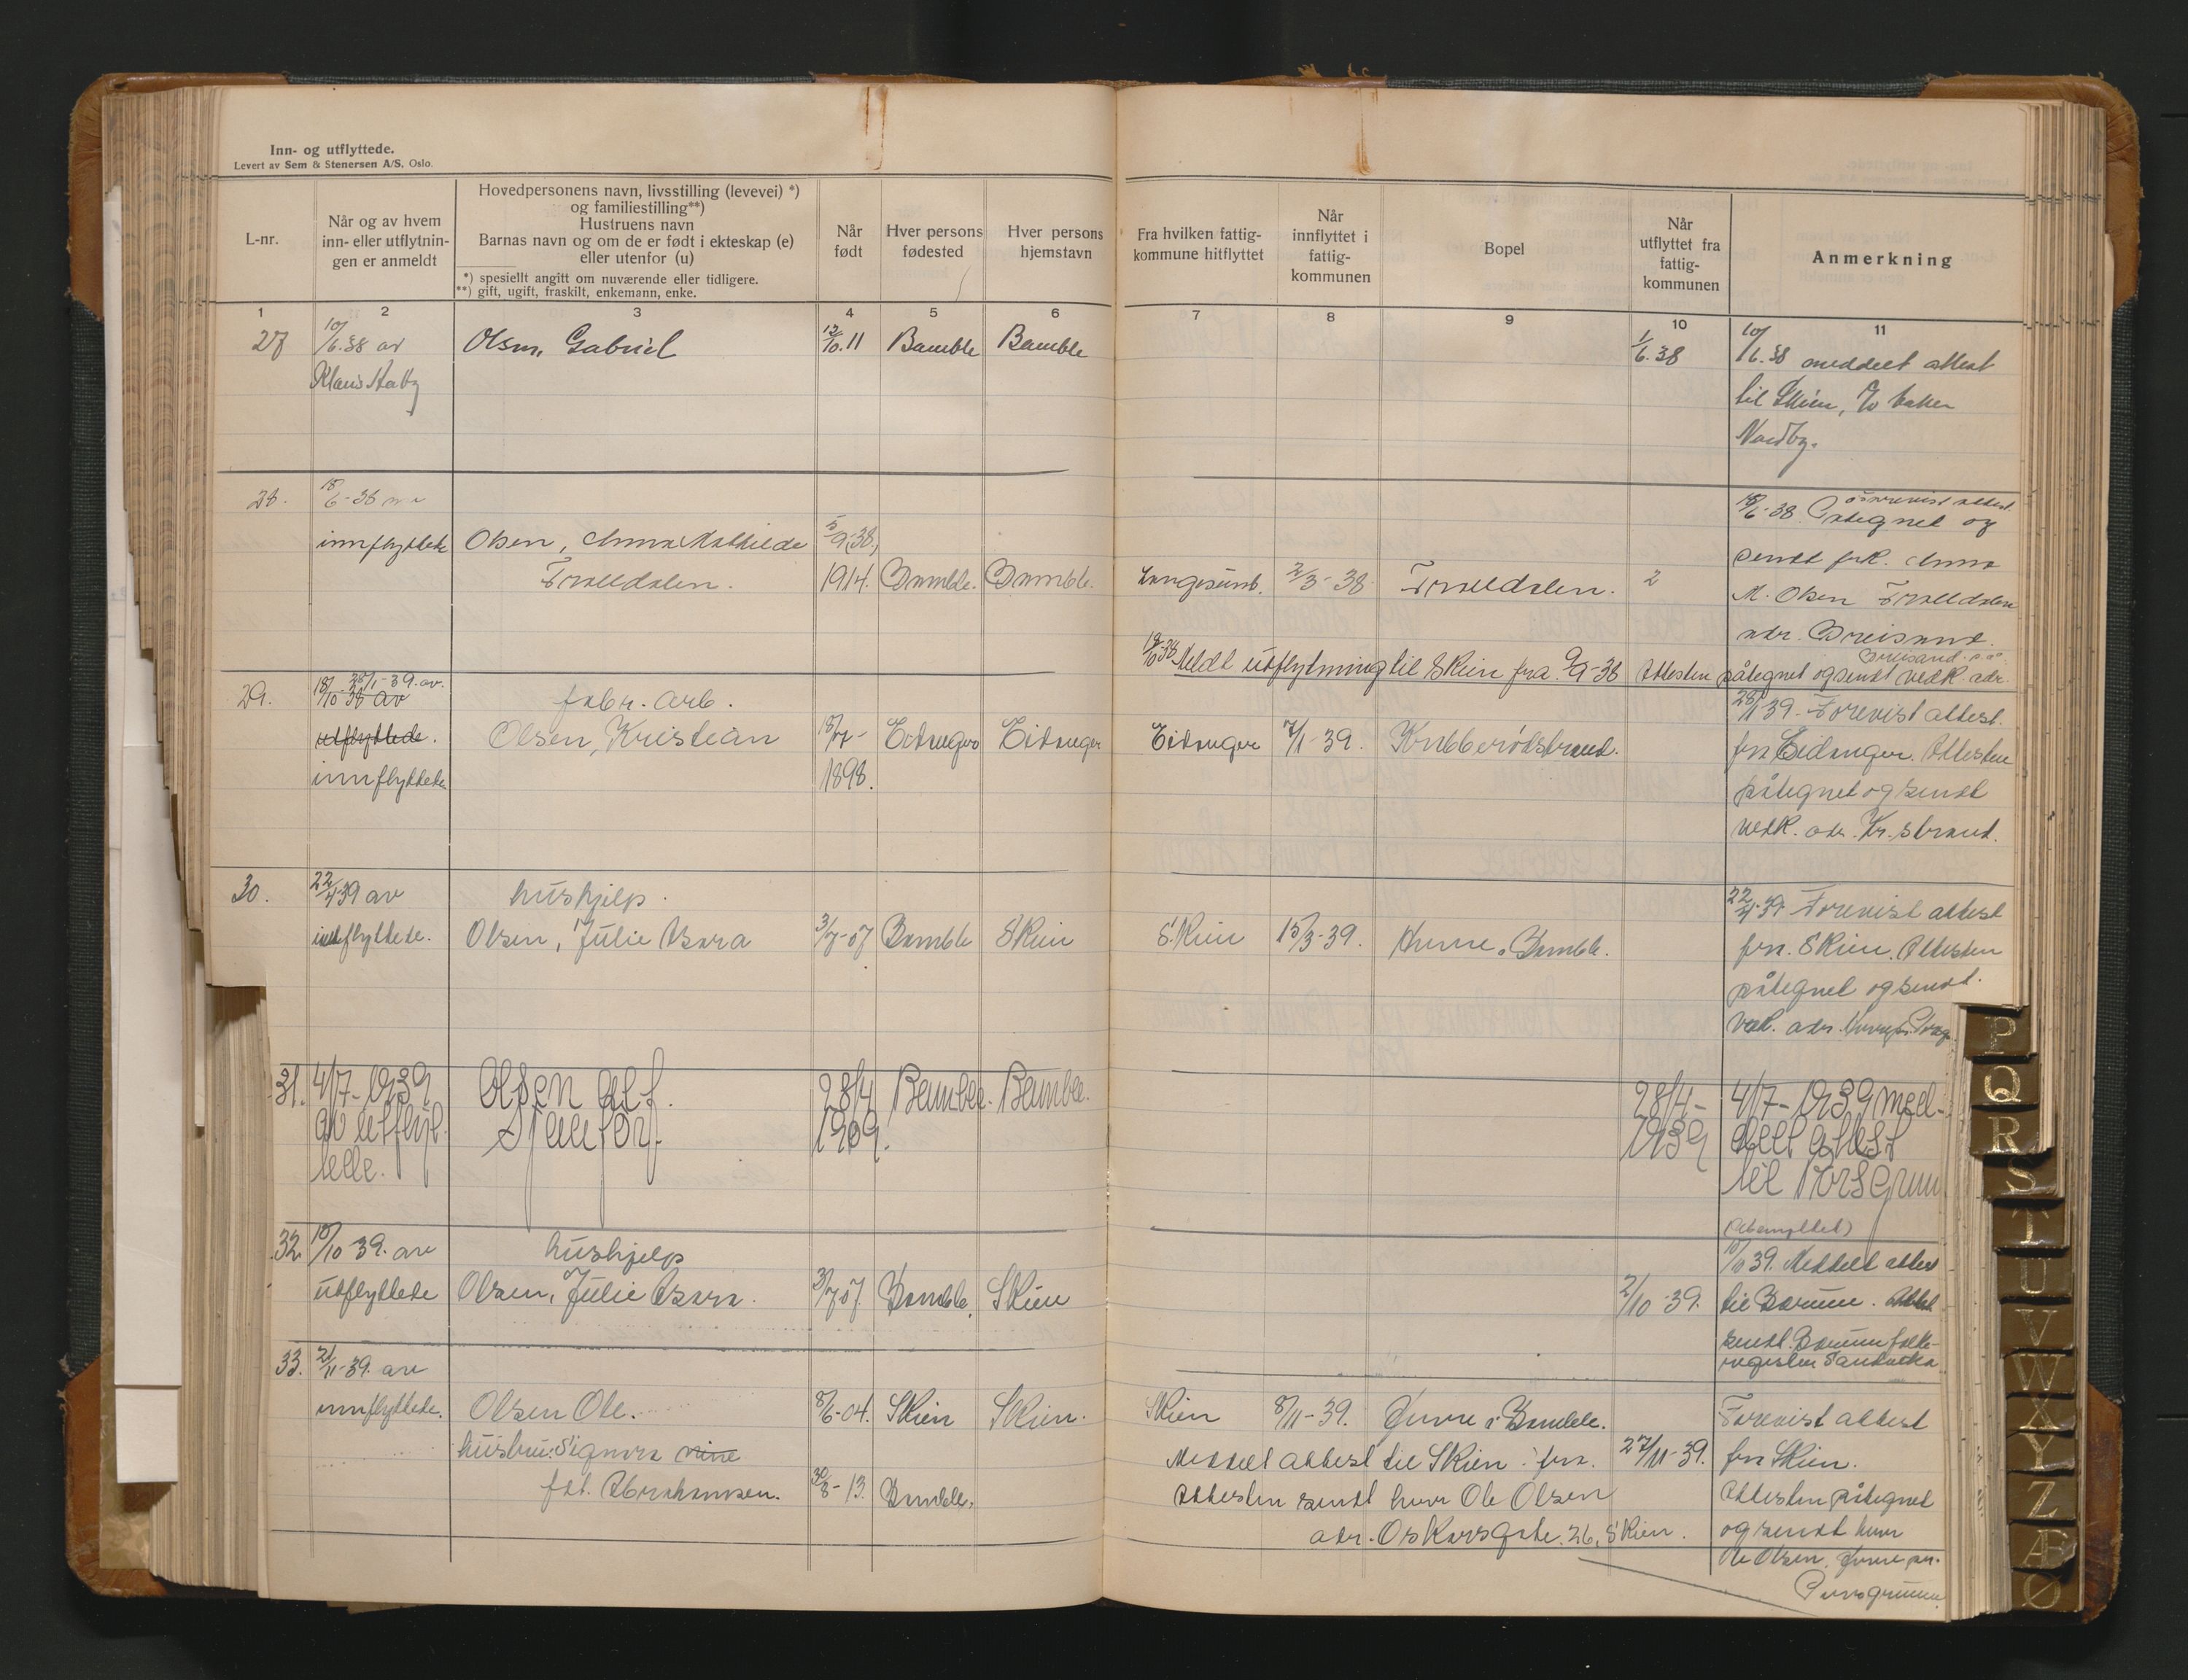 Inn- og utflyttede.
Levert av Sem & Stenersen A/S, Oslo.
L-nr.
Når og av hvem
inn- eller utflytnin-
gen er anmeldt
Hovedpersonens navn, livsstilling (levevei) *)
og familiestilling**)
Hustruens navn
Barnas navn og om de er født i ekteskap (e)
eller utenfor (u)
*) spesiellt angitt om nuværende eller tidligere.
**) gift, ugift, fraskilt, enkemann, enke.
Når
født
Hver persons
fødested
Hver persons
hjemstavn
Fra hvilken fattig-
kommune hitflyttet
Når
innflyttet i
fattig-
kommunen
Bopel
Når
utflyttet fra
fattig-
kommunen
Anmerkning
1 2 3 4 5 6 7 8 9 10 11
27 10/6.38 av Olsen, Gabriel 12/10.11 Bamble Bamble 1/6.38 10/6.38 meddelt attest
Klaus
til Skien, c/o baker
Nordby.
28. 18/6-38 18/6-38 forevist attest
påtegnet og
innflyttede Olsen, Anna Mathilde 5/9
sendt frk. Anna
Tralldalen. 1914. Bamble. Bamble. Langesund. 2/3-38 Tralldalen. 2
M. Olsen Tralldalen
adr. Breisand.
Meldt utflytning til Skien fra 9/9-38 Attesten påtegnet og sendt vedk. adr.
Breisand
29. 18/10-38 av 28/1-39. av. fabr. arb. 28/1 39. Forevist attest.
utflyttede. Olsen, Kristian 18/7- Eidanger Eidanger Eidanger 7/1-39. Krabberødstrand. fra Eidanger. Attesten
innflyttede 1898. påtegnet og sendt
vedk. adr. Kr. strand.
30. 22/4 39 av hushjelp. 22/4-39 Forevist attest
innflyttede. Olsen, Julie Asora 3/7-07 Bamble Skien Skien 15/3-39. Hurve, Bamble. fra Skien. Attesten
påtegnet og sendt.
vedk. adr.
31. 4/7-1939 Olsen Alf. 28/4 Bamble. Bamble. 28/4- 4/7-1939 med-
av utflyt- Sjaufør. 1909. 1939 delt attest
tede. til Porsgrun
32. 10/10 39. av hushjelp 10/10 39. Meddelt attest
utflyttede Olsen, Julie Asora. 3/7 07. Bamble, Skien 2/10-39. til Bærum. Attest
sendt Bærum folke-
register Sandvika
33. 21/11-39. av
innflyttede. Olsen Ole. 8/6-04. Skien Skien. Skien 8/11-39. i Bamble. Forevist attest
hustru: Signora Meddelt attest til Skien fra. 27/11-39. fra Skien.
født. Abrahamsen. 30/8-13. Bamble. Attesten sendt herr Ole Olsen Attesten påtegnet
adr. Oskarsgate. 26, Skien. og sendt herr
Ole Olsen.
P
Q
R
S
T
U
V
W
X
Y
Z
Æ
Ø